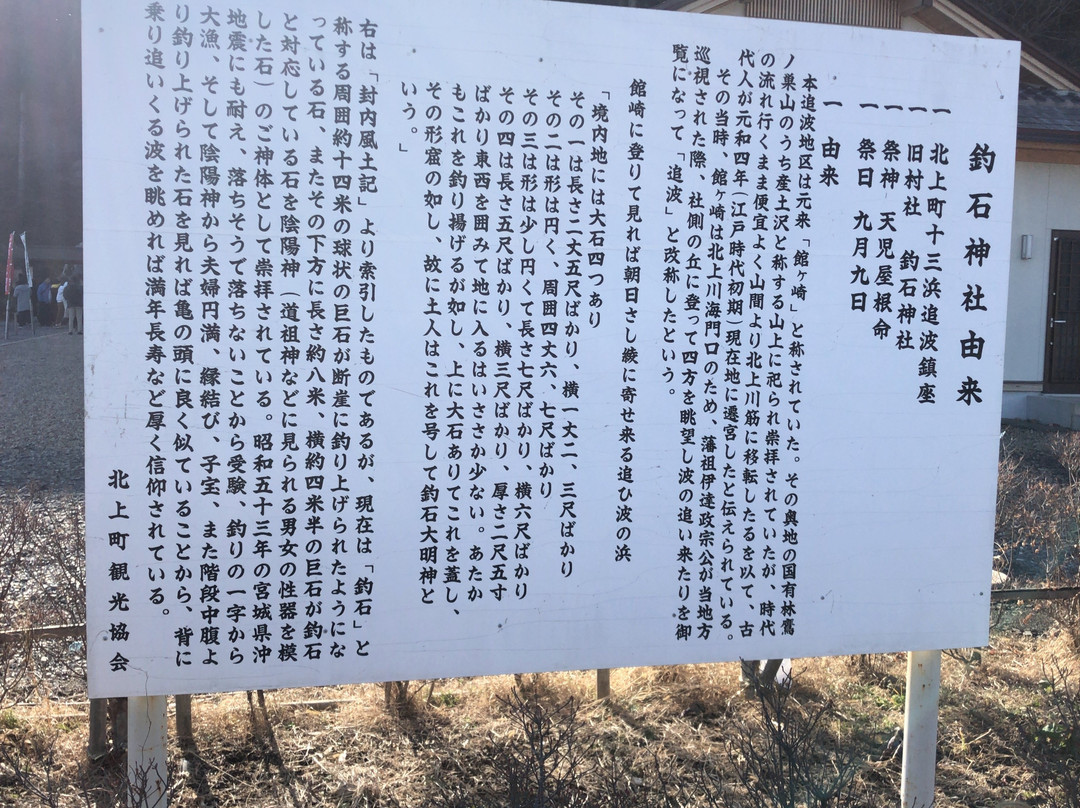 釣石神社由来
一 北上町十三浜追波鎮座
一 旧村社 釣石神社
一 祭神 天児屋根命
一 祭日 九月九日
一 由来
本追波地区は元来「館ヶ崎」と称されていた。その奥地の国有林鷹
ノ巣山のうち産土沢と称する山上に祀られ崇拝されていたが、時代
の流れ行くまま便宜よく山間より北上川筋に移転したるを以て、古
代人が元和四年(江戸時代初期)現在地に遷宮したと伝えられている。
その当時、館ヶ崎は北上川海門口のため、藩祖伊達政宗公が当地方
巡視された際、社側の丘に登って四方を眺望し波の追い来たりを御
覧になって「追波」と改称したという。
館崎に登りて見れば朝日さし綾に寄せ来る追ひ波の浜
「境内地には大石四つあり
その一は長さ二丈五尺ばかり、横一丈二、三尺ばかり
その二は形は円く、周囲四丈六、七尺ばかり
その三は形は少し円くて長さ七尺ばかり、横六尺ばかり
その四は長さ五尺ばかり、横三尺ばかり、厚さ二尺五寸
ばかり東西を囲みて地に入るはいささか少ない。あたか
もこれを釣り揚げるが如し、上に大石ありてこれを蓋し、
その形窟の如し、故に土人はこれを号して釣石大明神と
いう。」
右は「封内風土記」より索引したものであるが、現在は「釣石」と
称する周囲約十四米の球状の巨石が断崖に釣り上げられたようにな
っている石、またその下方に長さ約八米、横約四米半の巨石が釣石
と対応している石を陰陽神(道祖神などに見られる男女の性器を模
した石)のご神体として崇拝されている。昭和五十三年の宮城県沖
地震にも耐え、落ちそうで落ちないことから受験、釣りの一字から
大漁、そして陰陽神から夫婦円満、縁結び、子宝、また階段中腹よ
り釣り上げられた石を見れば亀の頭に良く似ていることから、背に
乗り追いくる波を眺めれば満年長寿など厚く信仰されている。
北上町観光協会